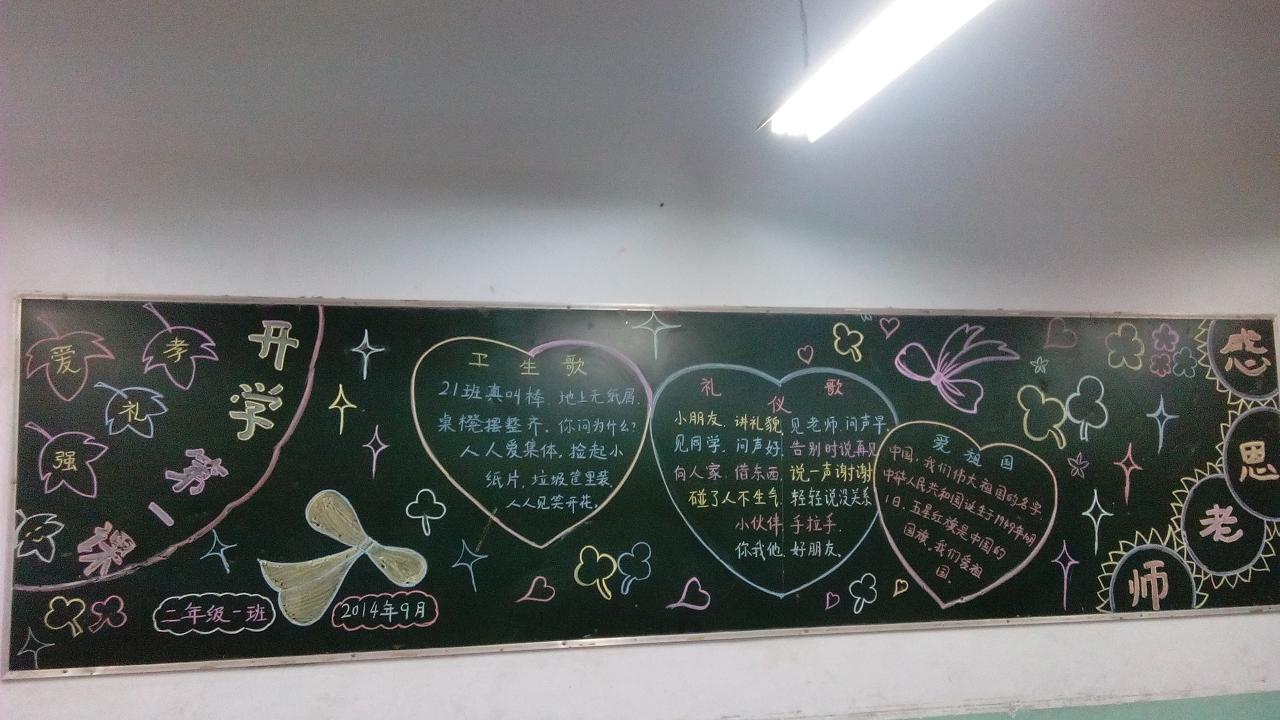 爱
孝
礼
强
开学第一课
二年级一班
2014年9月
卫生歌
21班真叫棒，地上无纸屑，
桌凳摆整齐，你问为什么？
人人爱集体，捡起小
纸片，垃圾筐里装，
人人见笑开花。
礼仪歌
小朋友，讲礼貌，见老师，问声早，
见同学，问声好，告别时说再见
向人家，借东西，说一声谢谢
碰了人不生气，轻轻说没关系
小伙伴，手拉手，
你我他，好朋友。
爱祖国
中国，我们伟大祖国的名字
中华人民共和国诞生于1949年10月
1日，五星红旗是中国的
国旗，我们爱祖
国。
感恩老师